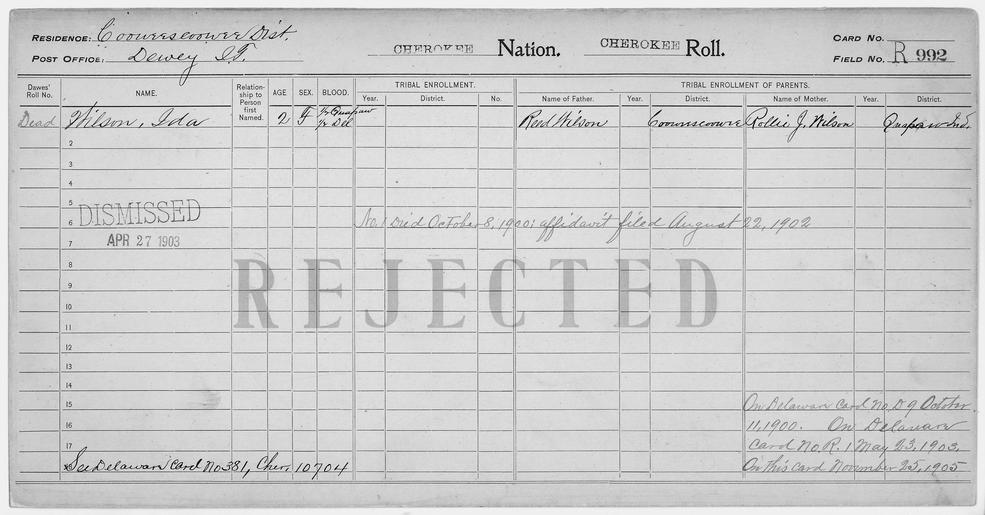 RESIDENCE: Cooweescoowee Dist.
POST OFFICE: Dewey I.T.
CHEROKEE Nation. CHEROKEE Roll.
CARD NO.
FIELD NO. R 992
Dawes' Roll No. NAME. Relationship to Person first Named. AGE SEX. BLOOD. TRIBAL ENROLLMENT. Year. District. No. TRIBAL ENROLLMENT OF PARENTS. Name of Father. Year. District. Name of Mother. Year. District.
Dead Wilson, Ida 2 F ½ Quapaw ½ Del Wilson Rollie J. Wilson Quapaw Ind.
2
3
4
5
DISMISSED
6 No. 1 Died October 8, 1900; affidavit filed August 22, 1902
7 APR 27 1903
8
REJECTED
9
10
11
12
13
14
15 On Delaware Card No. D 9 October
16 11, 1900. On Delaware
17 Card No. R. 1 May 23, 1903.
See Delaware Card No 381, Cher. 10704 On this card November 25, 1905